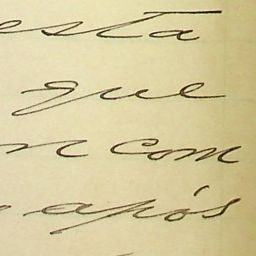 está
que
n com
após